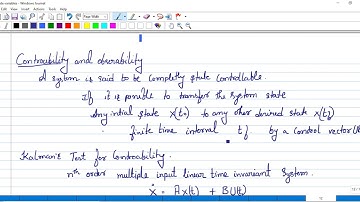 Controubility and observability
A system is said to be completly state controllable.
If it is posible to transfer the system state
any initial state X(t₀) to any other desired state X(t_f)
finite time interval t_f by a control vector (U
Kalman's Test for Controability.
nth order multiple input linear time invarient system.
Ẋ = A X(t) + B U(t)